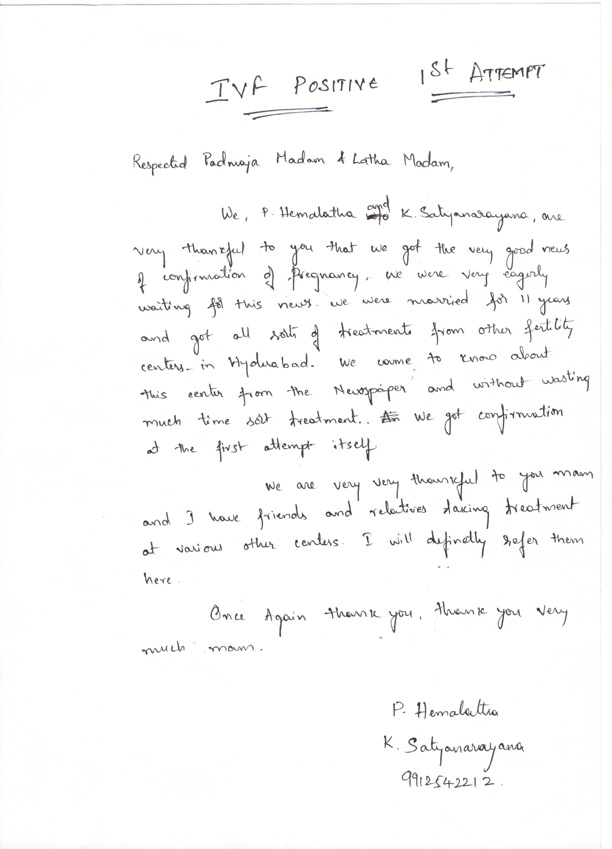 IVF POSITIVE 1St ATTEMPT
Respected Padmaja Madam & Latha Madam,
We, P. Hemalatha and K. Satyanarayana, are
very thankful to you that we got the very good news
of confirmation of Pregnancy. We were very eagerly
waiting for this news. We were married for 11 years
and got all sorts of treatments from other fertility
centers in Hyderabad. We came to know about
this center from the Newspaper and without wasting
much time sort treatment.. We got confirmation
at the first attempt itself
We are very very thankful to you mam
and I have friends and relatives taking treatment
at various other centers. I will definetly refer them
here.
Once Again thank you, thank you very
much mam.
P. Hemalatha
K. Satyanarayana
9912542212.